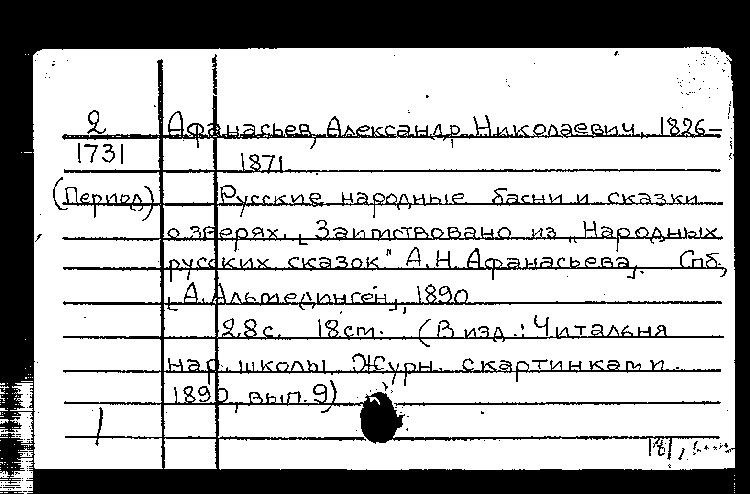 2 Афанасьев, Александр Николаевич, 1826-
1731 1871
(Период) Русские народные басни и сказки
о зверях. [Заимствовано из „Народных
русских сказок" А.Н. Афанасьева]. Спб,
[А. Альмединген], 1890
28 с. 18 cm. (В изд.: Читальня
нар. школы Журн. с картинками.
1890, вып. 9)
1
181,